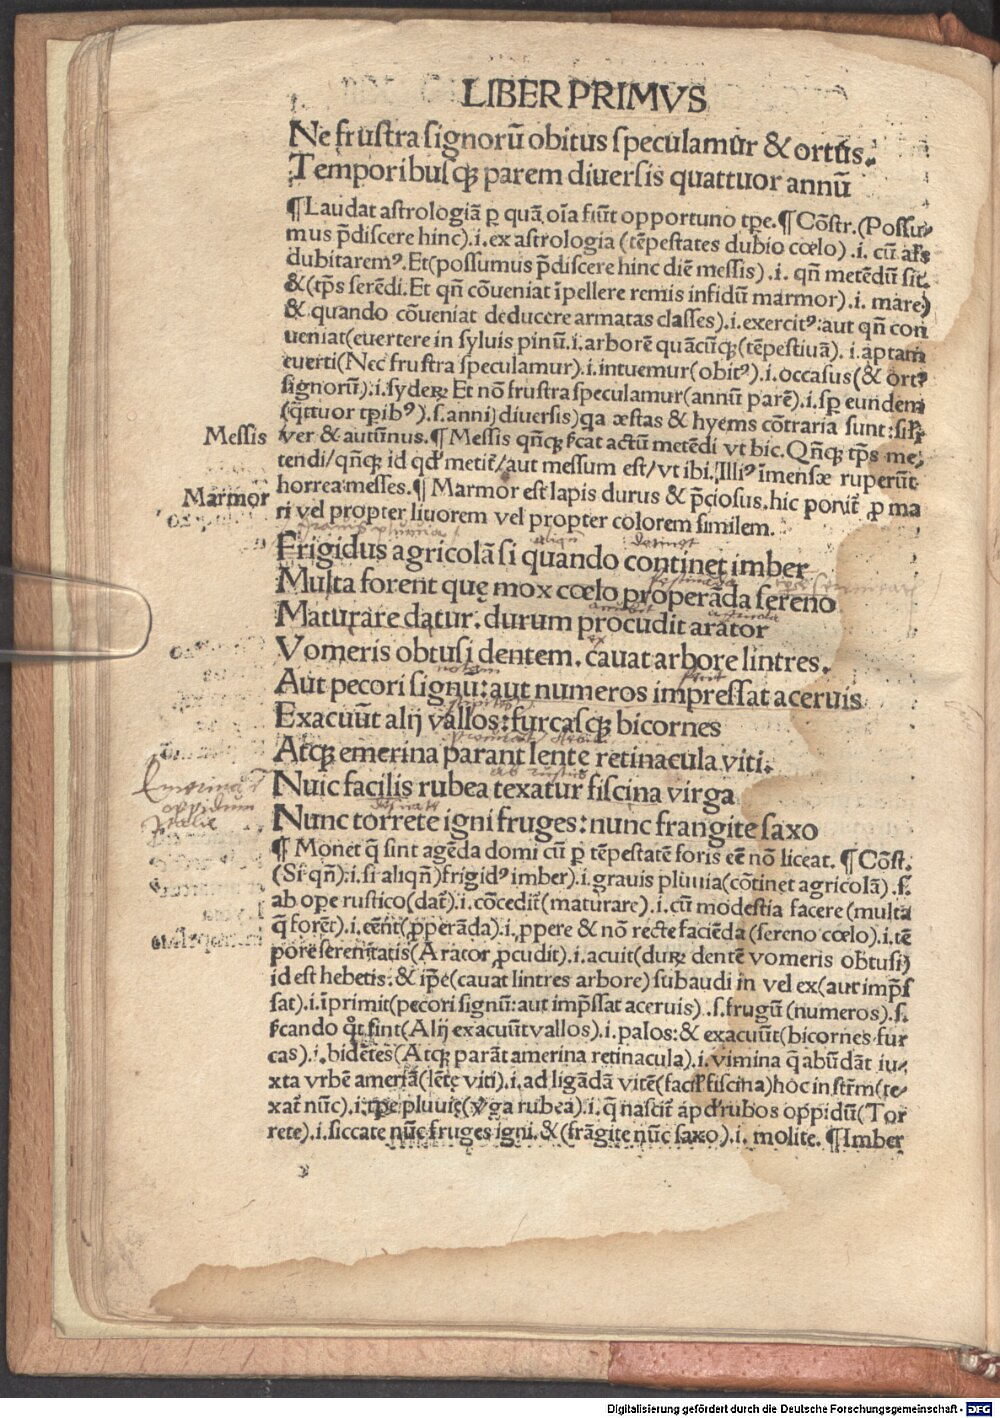 LIBER PRIMVS
Ne fruſtra ſignorū obitus ſpeculamur & ortus.
Temporibuſqꝫ parem diuerſis quattuor annū
¶Laudat aſtrologiā ꝑ quā oīa fiūt opportuno tꝑe.¶Cōſtr.(Poſſu⸗
mus p̄diſcere hinc).i.ex aſtrologia (tēpeſtates dubio cœlo).i. cū alꝭs
dubitaremꝰ.Et(poſſumus p̄diſcere hinc diē meſſis).i. qn̄ metēdū ſit.
&(tp̄s ſerēdi.Et qn̄ cōueniat īpellere remis infidū marmor).i. mare)
& quando cōueniat deducere armatas claſſes).i.exercitꝰ:aut qn̄ con
ueniat(euertere in ſyluis pinū.i.arborē quācūqꝫ(tēpeſtiuā). i.aptam
euerti(Nec fruſtra ſpeculamur).i.intuemur(obitꝰ).i.occaſus(& ortꝰ
ſignorū).i.ſyderꝝ Et nō fruſtra ſpeculamur(annū parē).i.ſꝑ eundem
(q̄ttuor tꝑibꝰ).ſ.annij diuerſis)qa æſtas & hyems cōtraria ſunt:ſilꝝ
Meſſis ver & autūnus.¶Meſſis qn̄cqꝫ ſcat actū metēdi vt hic.Qn̄cqꝫ tp̄s me⸗
tendi/qn̄cqꝫ id qd' metit̄/aut meſſum eſt/vt ibi.Illiꝰ īmenſæ ruperūt
Marmor horrea meſſes.¶Marmor eſt lapis durus & p̄cioſus.hic ponit̄ ꝓ ma
ri vel propter liuorem vel propter colorem ſimilem.
Frigidus agricolā ſi quando continet imber
Multa forent quę mox cœlo properāda ſereno
Maturare datur. durum procudit arator
Vomeris obtuſi dentem. cauat arbore lintres.
Aut pecori ſignū:aut numeros impreſſat aceruis
Exacuūt alij vallos:furcaſqꝫ bicornes
Atqꝫ emerina parant lente retinacula viti.
Nuic facilis rubea texatur fiſcina virga
Nunc torrete igni fruges:nunc frangite ſaxo
¶ Monet q̄ ſint agēda domi cū ꝑ tēpeſtatē foris eē nō liceat. ¶Cōſt.
(Si qn̄).i.ſi aliqn̄)frigidꝰ imber).i.grauis pluuia(cōtinet agricolā).ſ.
ab ope ruſtico(dat̄).i.cōcedit̄(maturare).i.cū modeſtia facere(multa
q̄ forēt).i.eēnt(ꝓperāda).i.ꝓpere & nō recte faciēda(ſereno cœlo).i.tē
pore ſerenitatis(Arator ꝓcudit).i.acuit(durꝝ dentē vomeris obtuſi)
id eſt hebetis.& ip̄e(cauat lintres arbore)ſubaudi in vel ex(aut imp̄ſ
ſat).i.īprimit(pecori ſignū:aut imp̄ſſat aceruis).ſ.frugū(numeros).ſ.
ſcando qͦt ſint(Alij exacuūt vallos).i.palos:& exacuūt(bicornes fur
cas).i.bidētes(Atqꝫ parāt amerina retinacula).i.vimina q̄ abūdāt iu⸗
xta vrbē ameriā(lētę viti).i.ad ligādā vitē(facil' fiſcina)hoc inſtr̄m(te⸗
xat̄ nūc).i.tꝑe pluuię(v̄ga rubea).i.q̄ naſcit̄ apd' rubos oppidū(Tor
rete).i.ſiccate nūc fruges igni.&(frāgite nūc ſaxo).i. molite.¶Imber
Emerina
oppidum
Italiæ
Digitalisierung gefördert durch die Deutsche Forschungsgemeinschaft - DFG